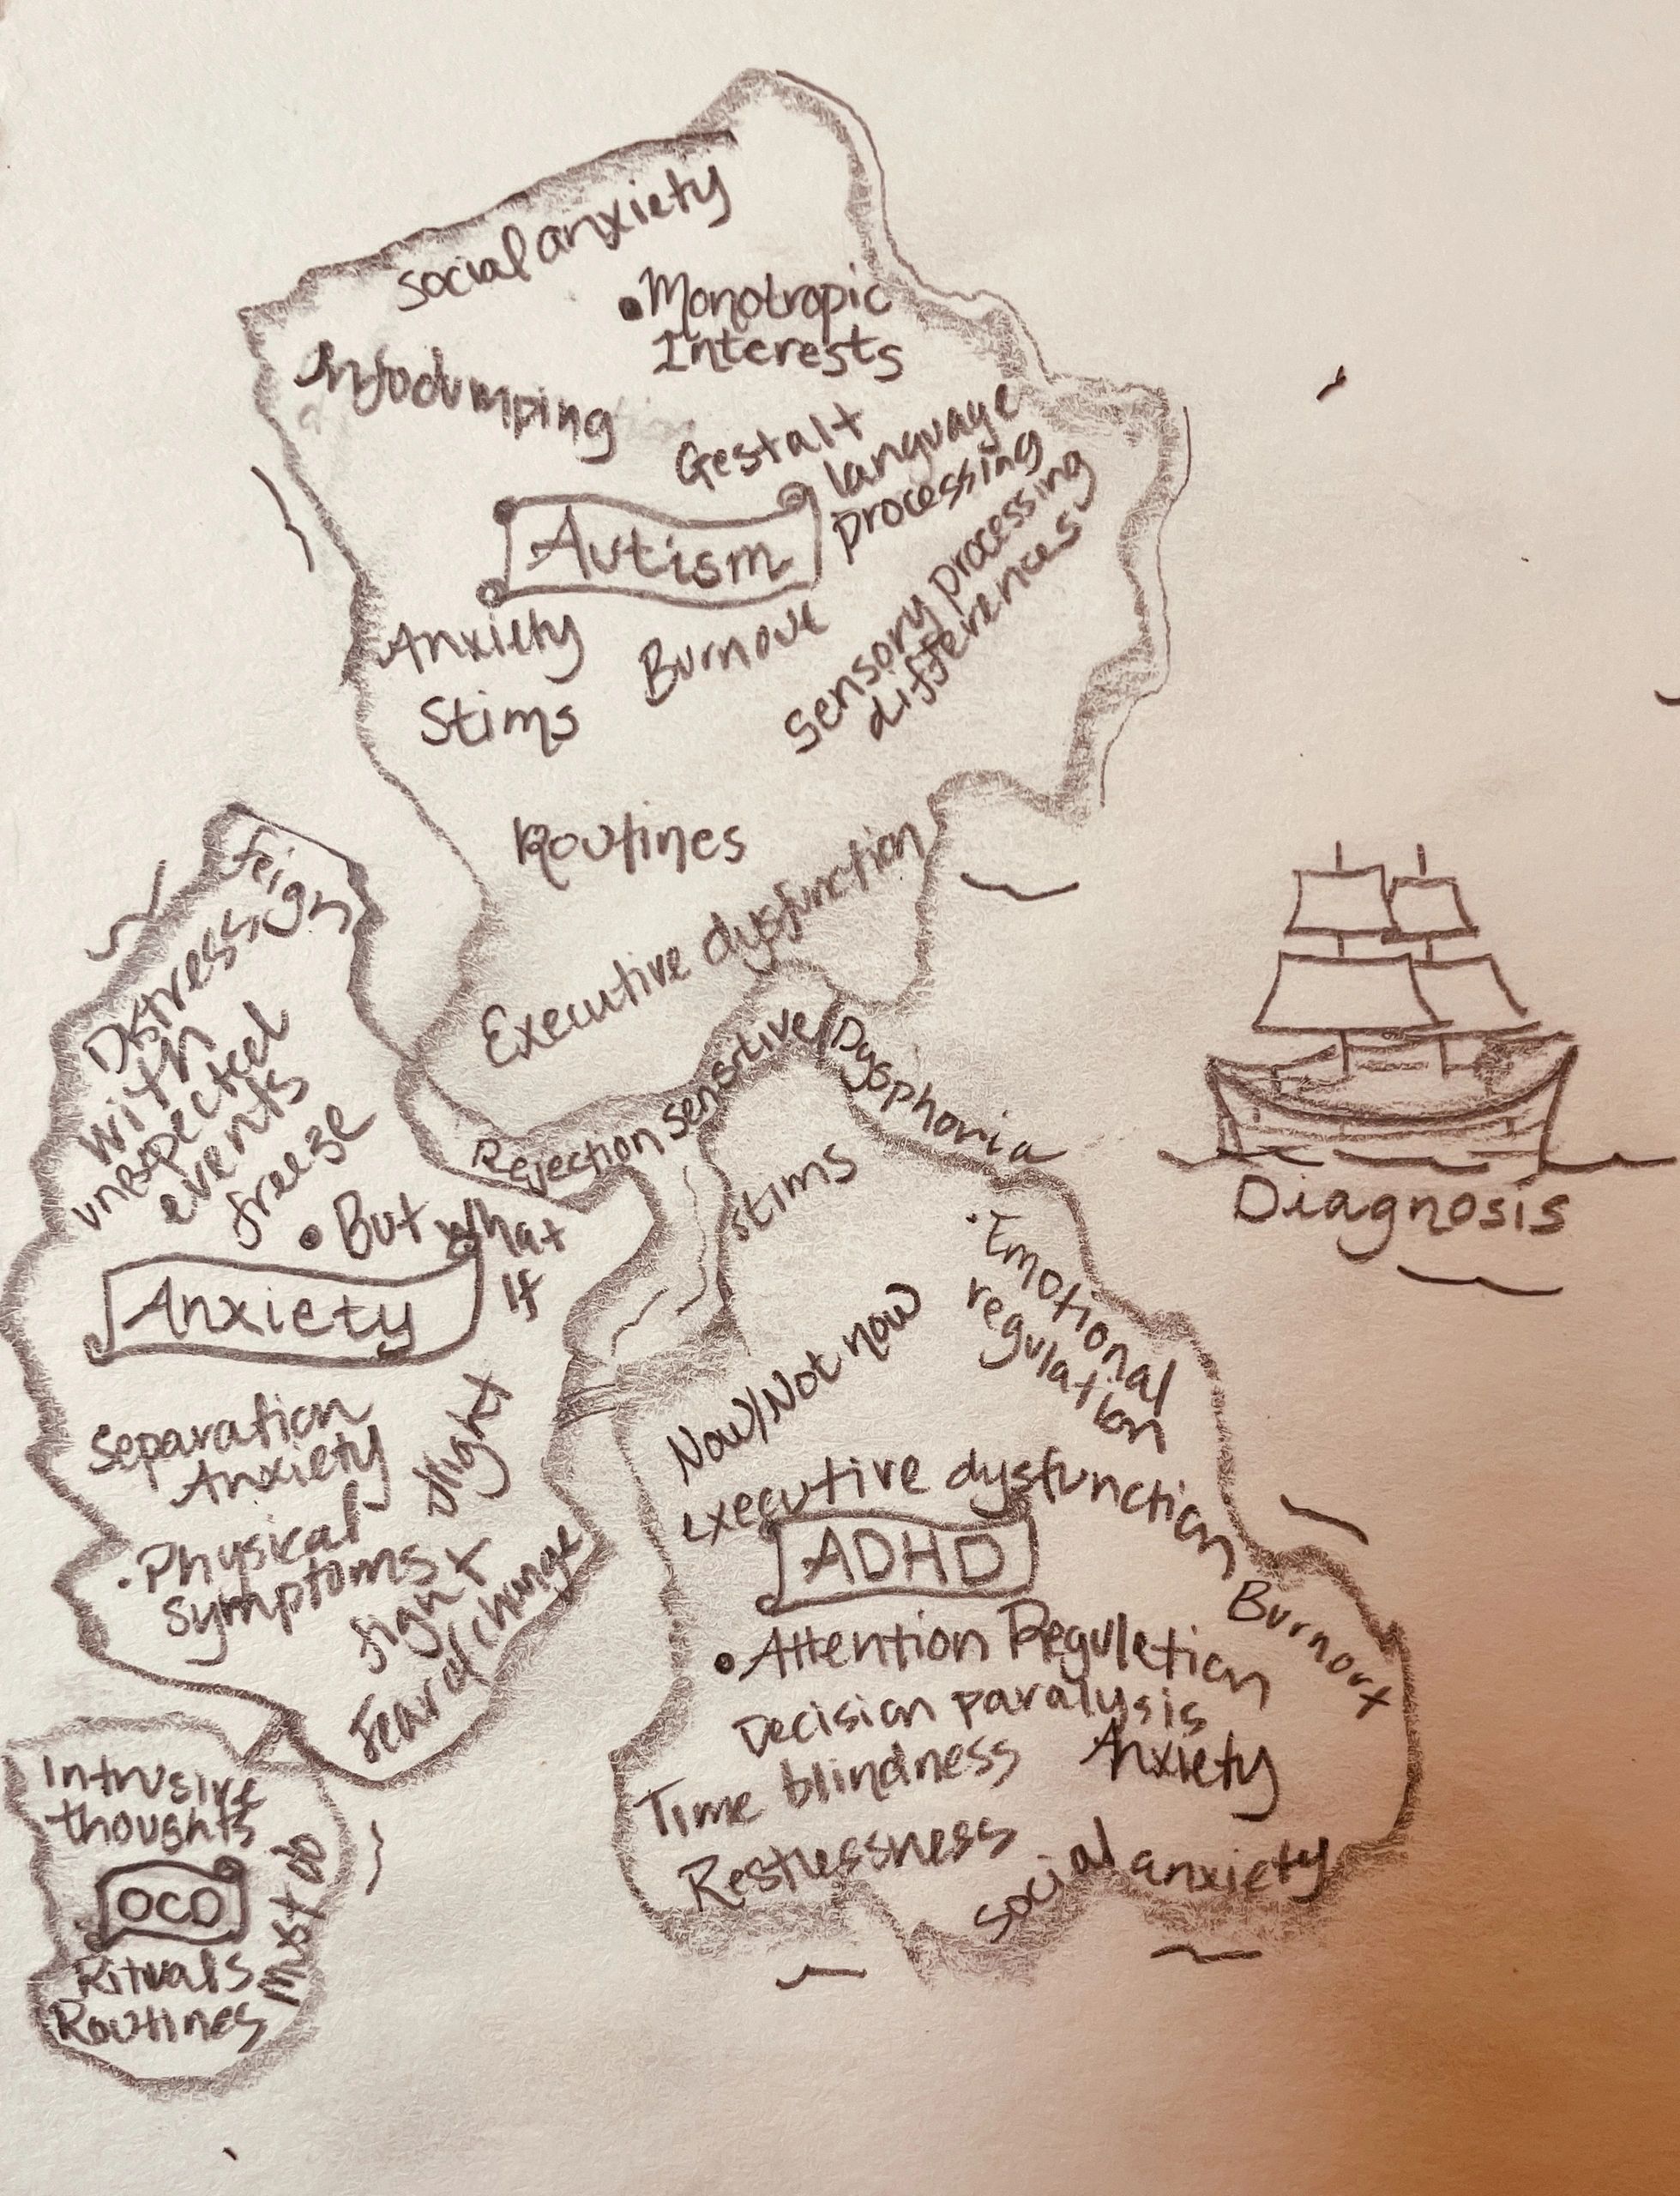 Social anxiety
Monotropic
Interests
Infodumping
Gestalt
language
processing
Sensory processing
differences
Autism
Anxiety
Burnout
Stims
Routines
Executive dysfunction
Rejection sensitive Dysphoria
feign
Distress
with
unexpected
events
freeze
But what
If
Anxiety
Separation
Anxiety
flight
Physical
symptoms
fight
Fear of change
stims
Emotional
regulation
Now/Not now
executive dysfunction
ADHD
Burnout
Attention Regulation
Decision paralysis
Time blindness
Anxiety
Restlessness
social anxiety
Intrusive
thoughts
OCD
must do
Rituals
Routines
Diagnosis